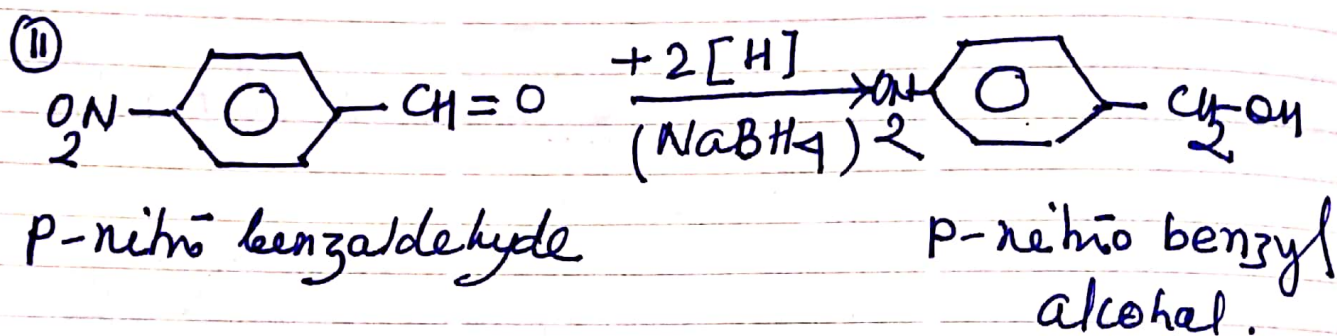 (11)
O2N CH=O +2[H] (NaBH4) O2N CH2-OH
p-nitro benzaldehyde p-nitro benzyl
alcohal.